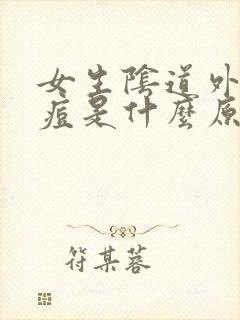 女生陰道外
痘是什麼原
符某蓉